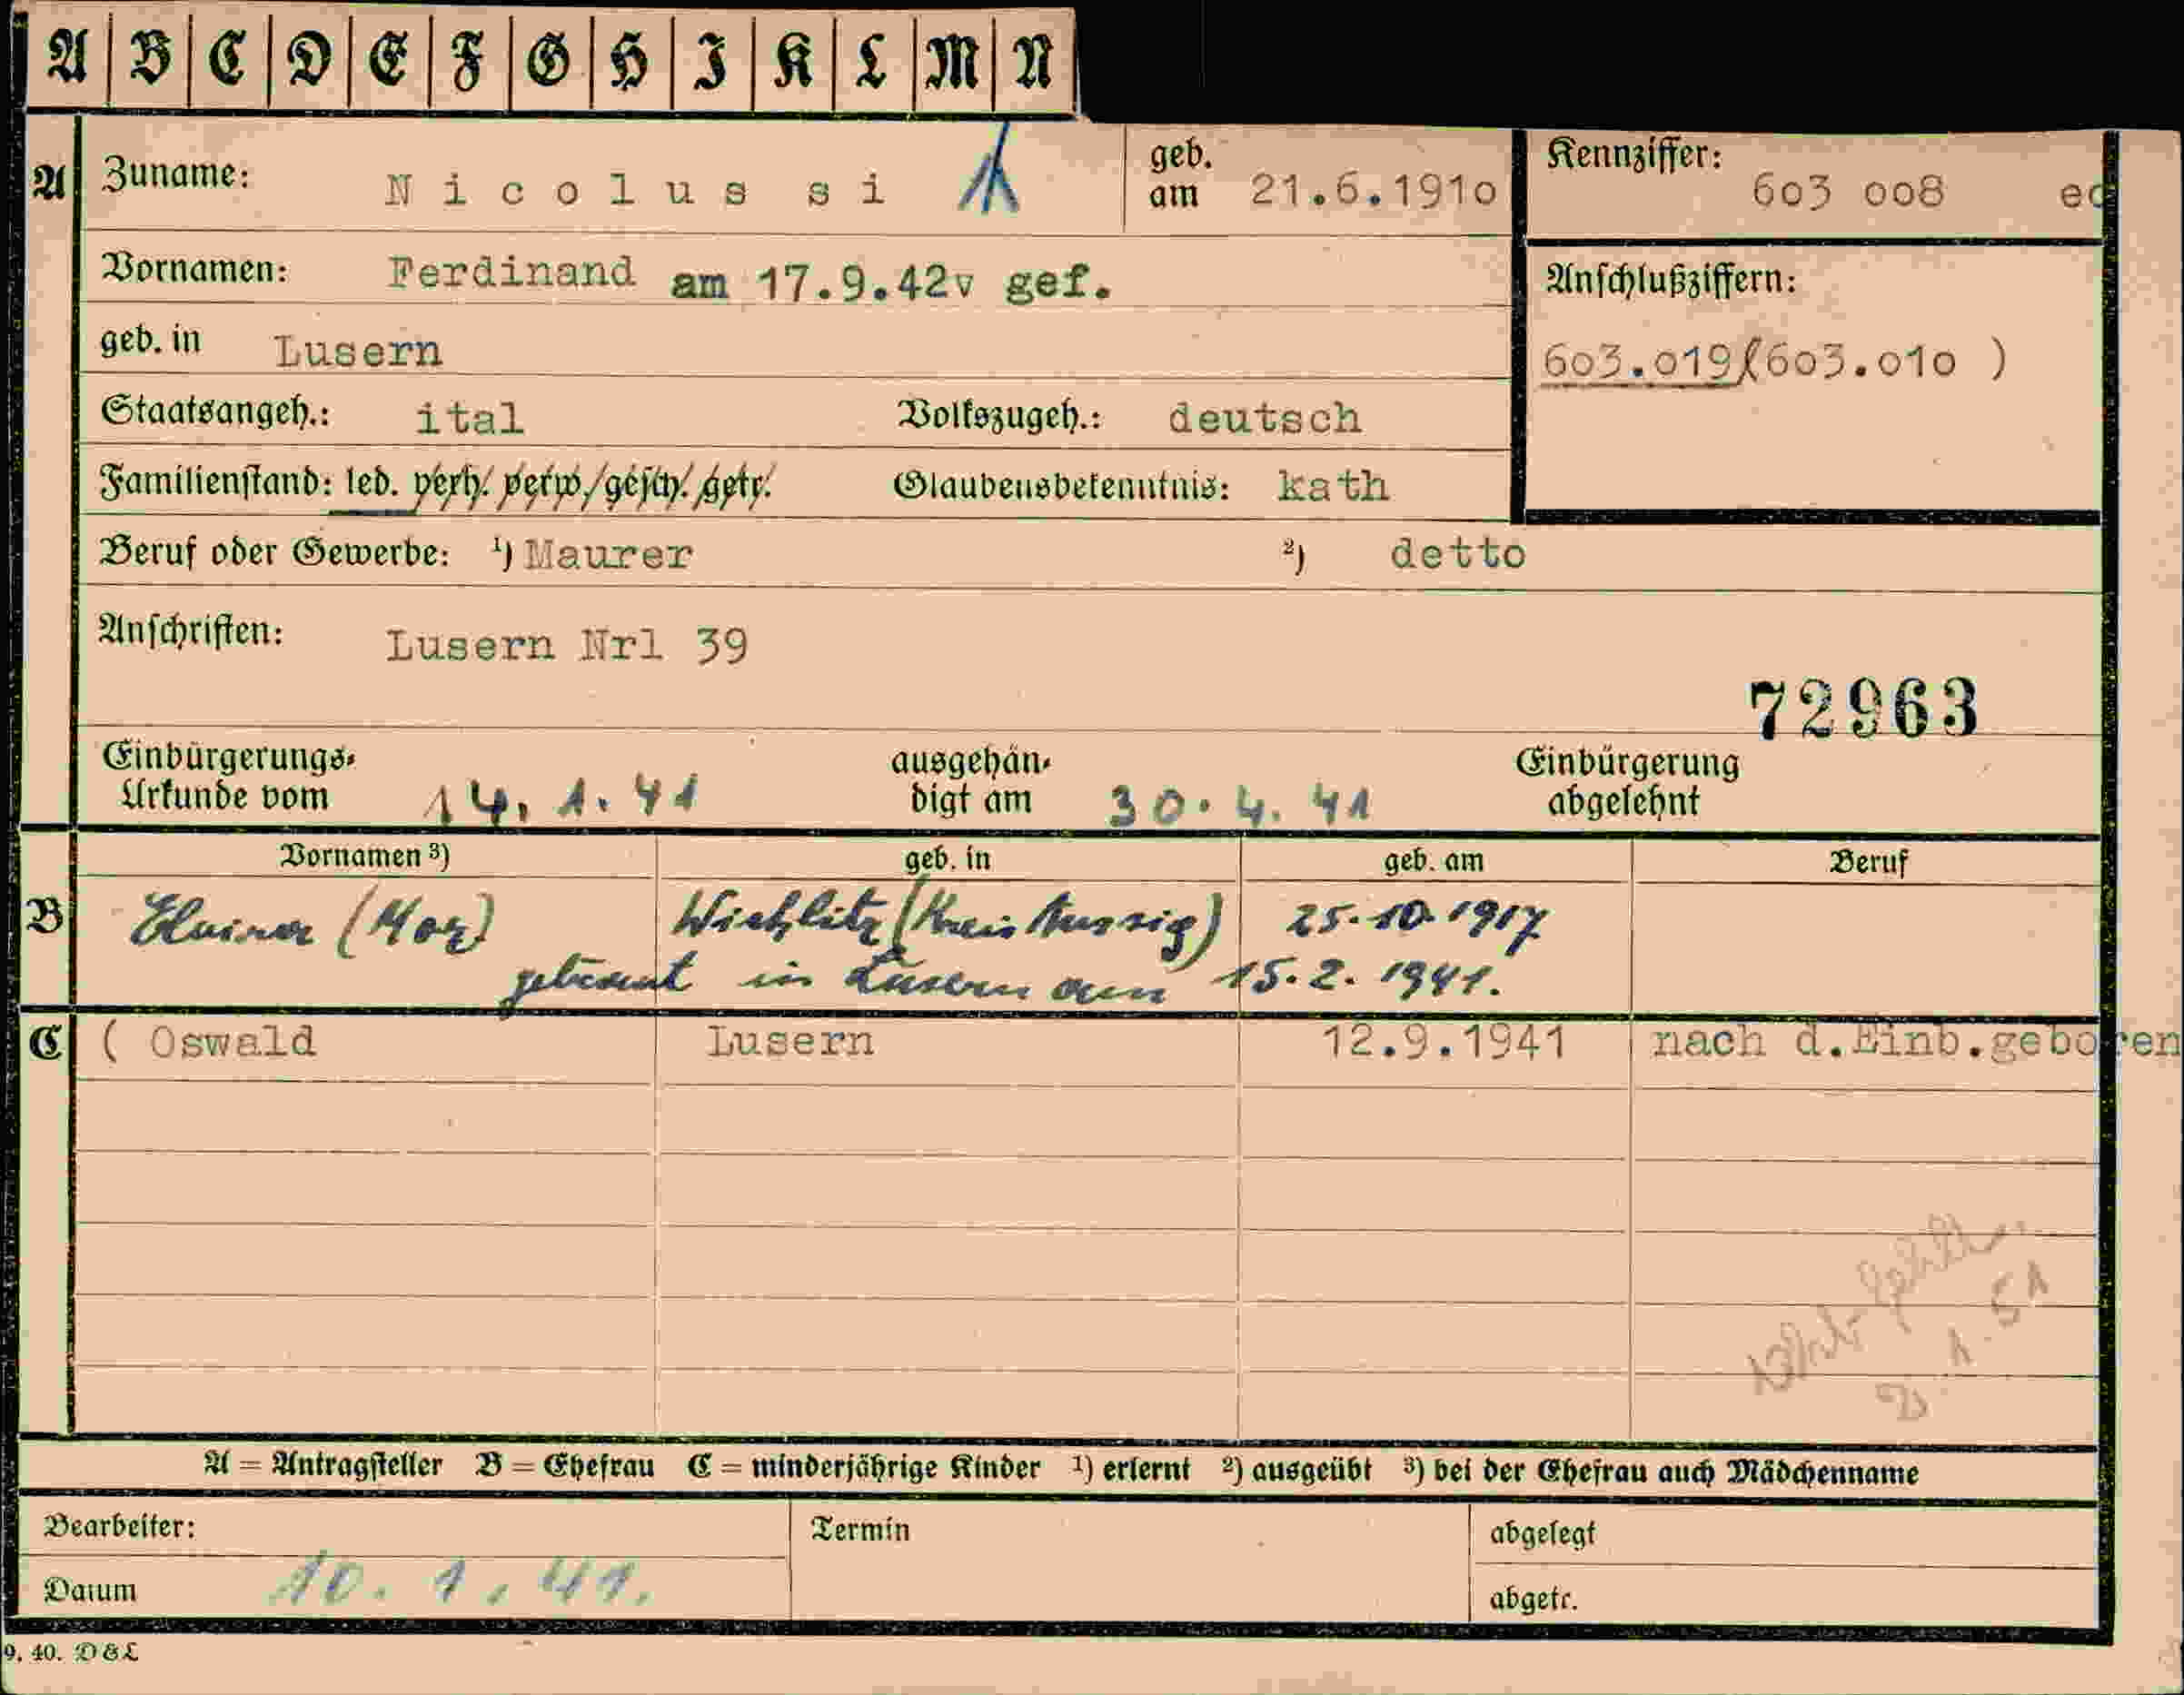 A B C D E F G H I K L M N
A Zuname: N i c o l u s s i geb. am 21.6.191o Kennziffer: 6o3 oo8 ec
Vornamen: Ferdinand am 17.9.42v gef. Anschlußziffern:
geb. in Lusern 6o3.o19(6o3.o1o )
Staatsangeh.: ital Volkszugeh.: deutsch
Familienstand: led. verh. verw. gesch. getr. Glaubensbekenntnis: kath
Beruf oder Gewerbe: ¹) Maurer ²) detto
Anschriften: Lusern Nrl 39
72963
Einbürgerungs-Urkunde vom 14. 1. 41 ausgehändigt am 30. 4. 41 Einbürgerung abgelehnt
Vornamen ³) geb. in geb. am Beruf
B (Moz) (Kreis Aussig) 25.10.1917
getraut in Lusern am 15.2.1941.
C ( Oswald Lusern 12.9.1941 nach d.Einb.geboren
1. 51
A = Antragsteller B = Ehefrau C = minderjährige Kinder ¹) erlernt ²) ausgeübt ³) bei der Ehefrau auch Mädchenname
Bearbeiter: Termin abgelegt
Datum 10. 1. 41. abgetr.
9. 40. D&L